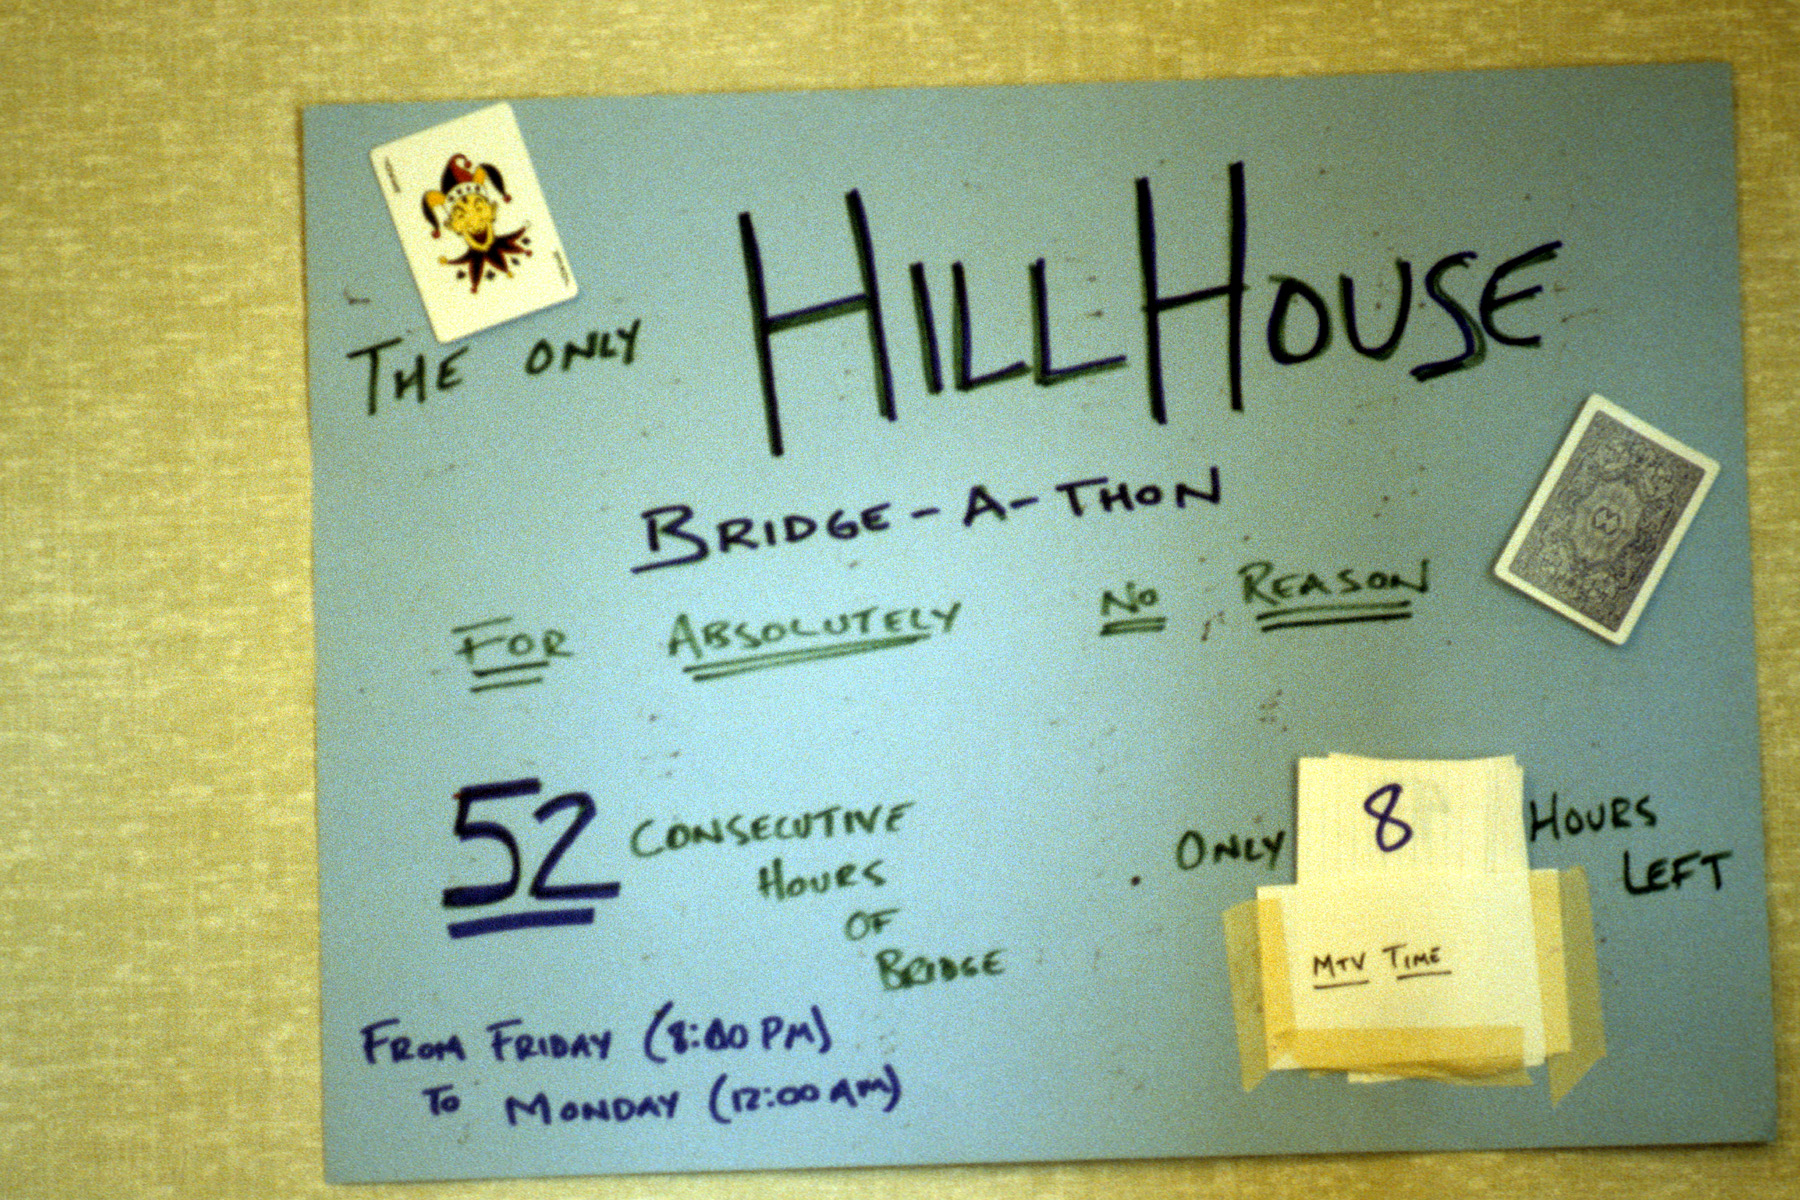 THE ONLY HILL HOUSE
BRIDGE-A-THON
FOR ABSOLUTELY NO REASON
52 CONSECUTIVE
HOURS
OF
BRIDGE
ONLY 8 HOURS
LEFT
MTV TIME
FROM FRIDAY (8:00 PM)
TO MONDAY (12:00 AM)